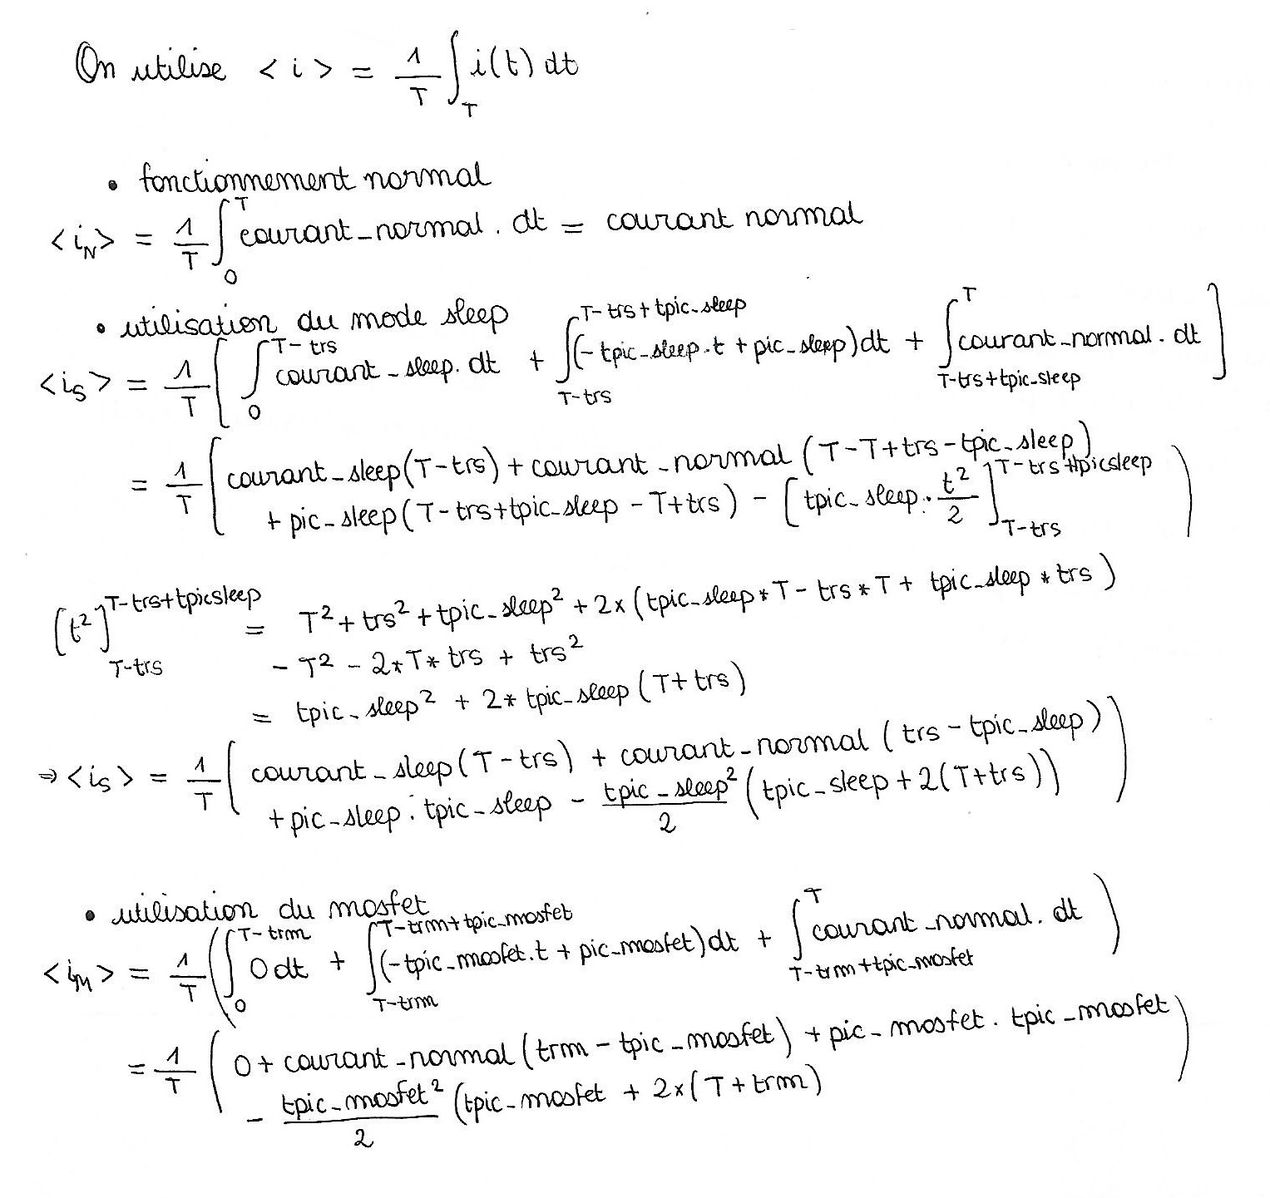 On utilise <i> = 1/T ∫_T i(t) dt
• fonctionnement normal
<i_N> = 1/T ∫_0^T courant_normal . dt = courant normal
• utilisation du mode sleep
<i_S> = 1/T [ ∫_0^{T-trs} courant_sleep. dt + ∫_{T-trs}^{T-trs+tpic_sleep} (-tpic_sleep.t + pic_sleep)dt + ∫_{T-trs+tpic_sleep}^T courant_normal. dt ]
= 1/T [ courant_sleep(T-trs) + courant_normal (T-T+trs-tpic_sleep)
+ pic_sleep(T-trs+tpic_sleep - T+trs) - [tpic_sleep . t²/2]_{T-trs}^{T-trs+tpicsleep} )
[t²]_{T-trs}^{T-trs+tpicsleep} = T² + trs² + tpic_sleep² + 2x(tpic_sleep*T - trs*T + tpic_sleep*trs)
- T² - 2*T*trs + trs²
= tpic_sleep² + 2* tpic_sleep (T+trs)
⇒ <is> = 1/T ( courant_sleep(T-trs) + courant_normal (trs - tpic_sleep)
+ pic_sleep . tpic_sleep - tpic_sleep²/2 (tpic_sleep + 2(T+trs)) )
• utilisation du mosfet
<i_M> = 1/T ( ∫_0^{T-trm} 0 dt + ∫_{T-trm}^{T-trm+tpic_mosfet} (-tpic_mosfet.t + pic_mosfet)dt + ∫_{T-trm+tpic_mosfet}^T courant_normal. dt )
= 1/T ( 0 + courant_normal (trm - tpic_mosfet) + pic_mosfet. tpic_mosfet
- tpic_mosfet²/2 (tpic_mosfet + 2x(T+trm) )